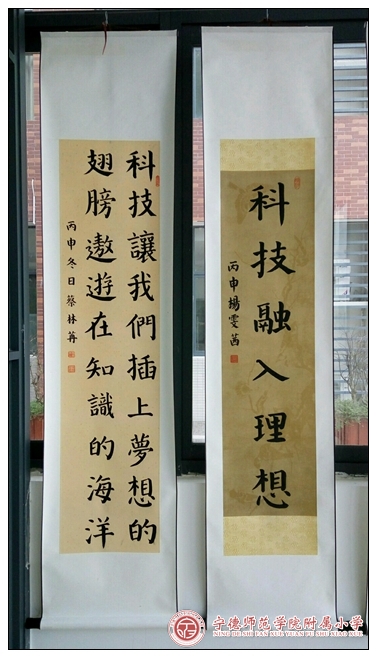 科技融入理想
丙申楊雯茜
科技讓我們插上夢想的
翅膀遨遊在知識的海洋
丙申冬日蔡林苒
宁德师范学院附属小学
NING DE SHI FAN XUE YUAN FU SHU XIAO XUE